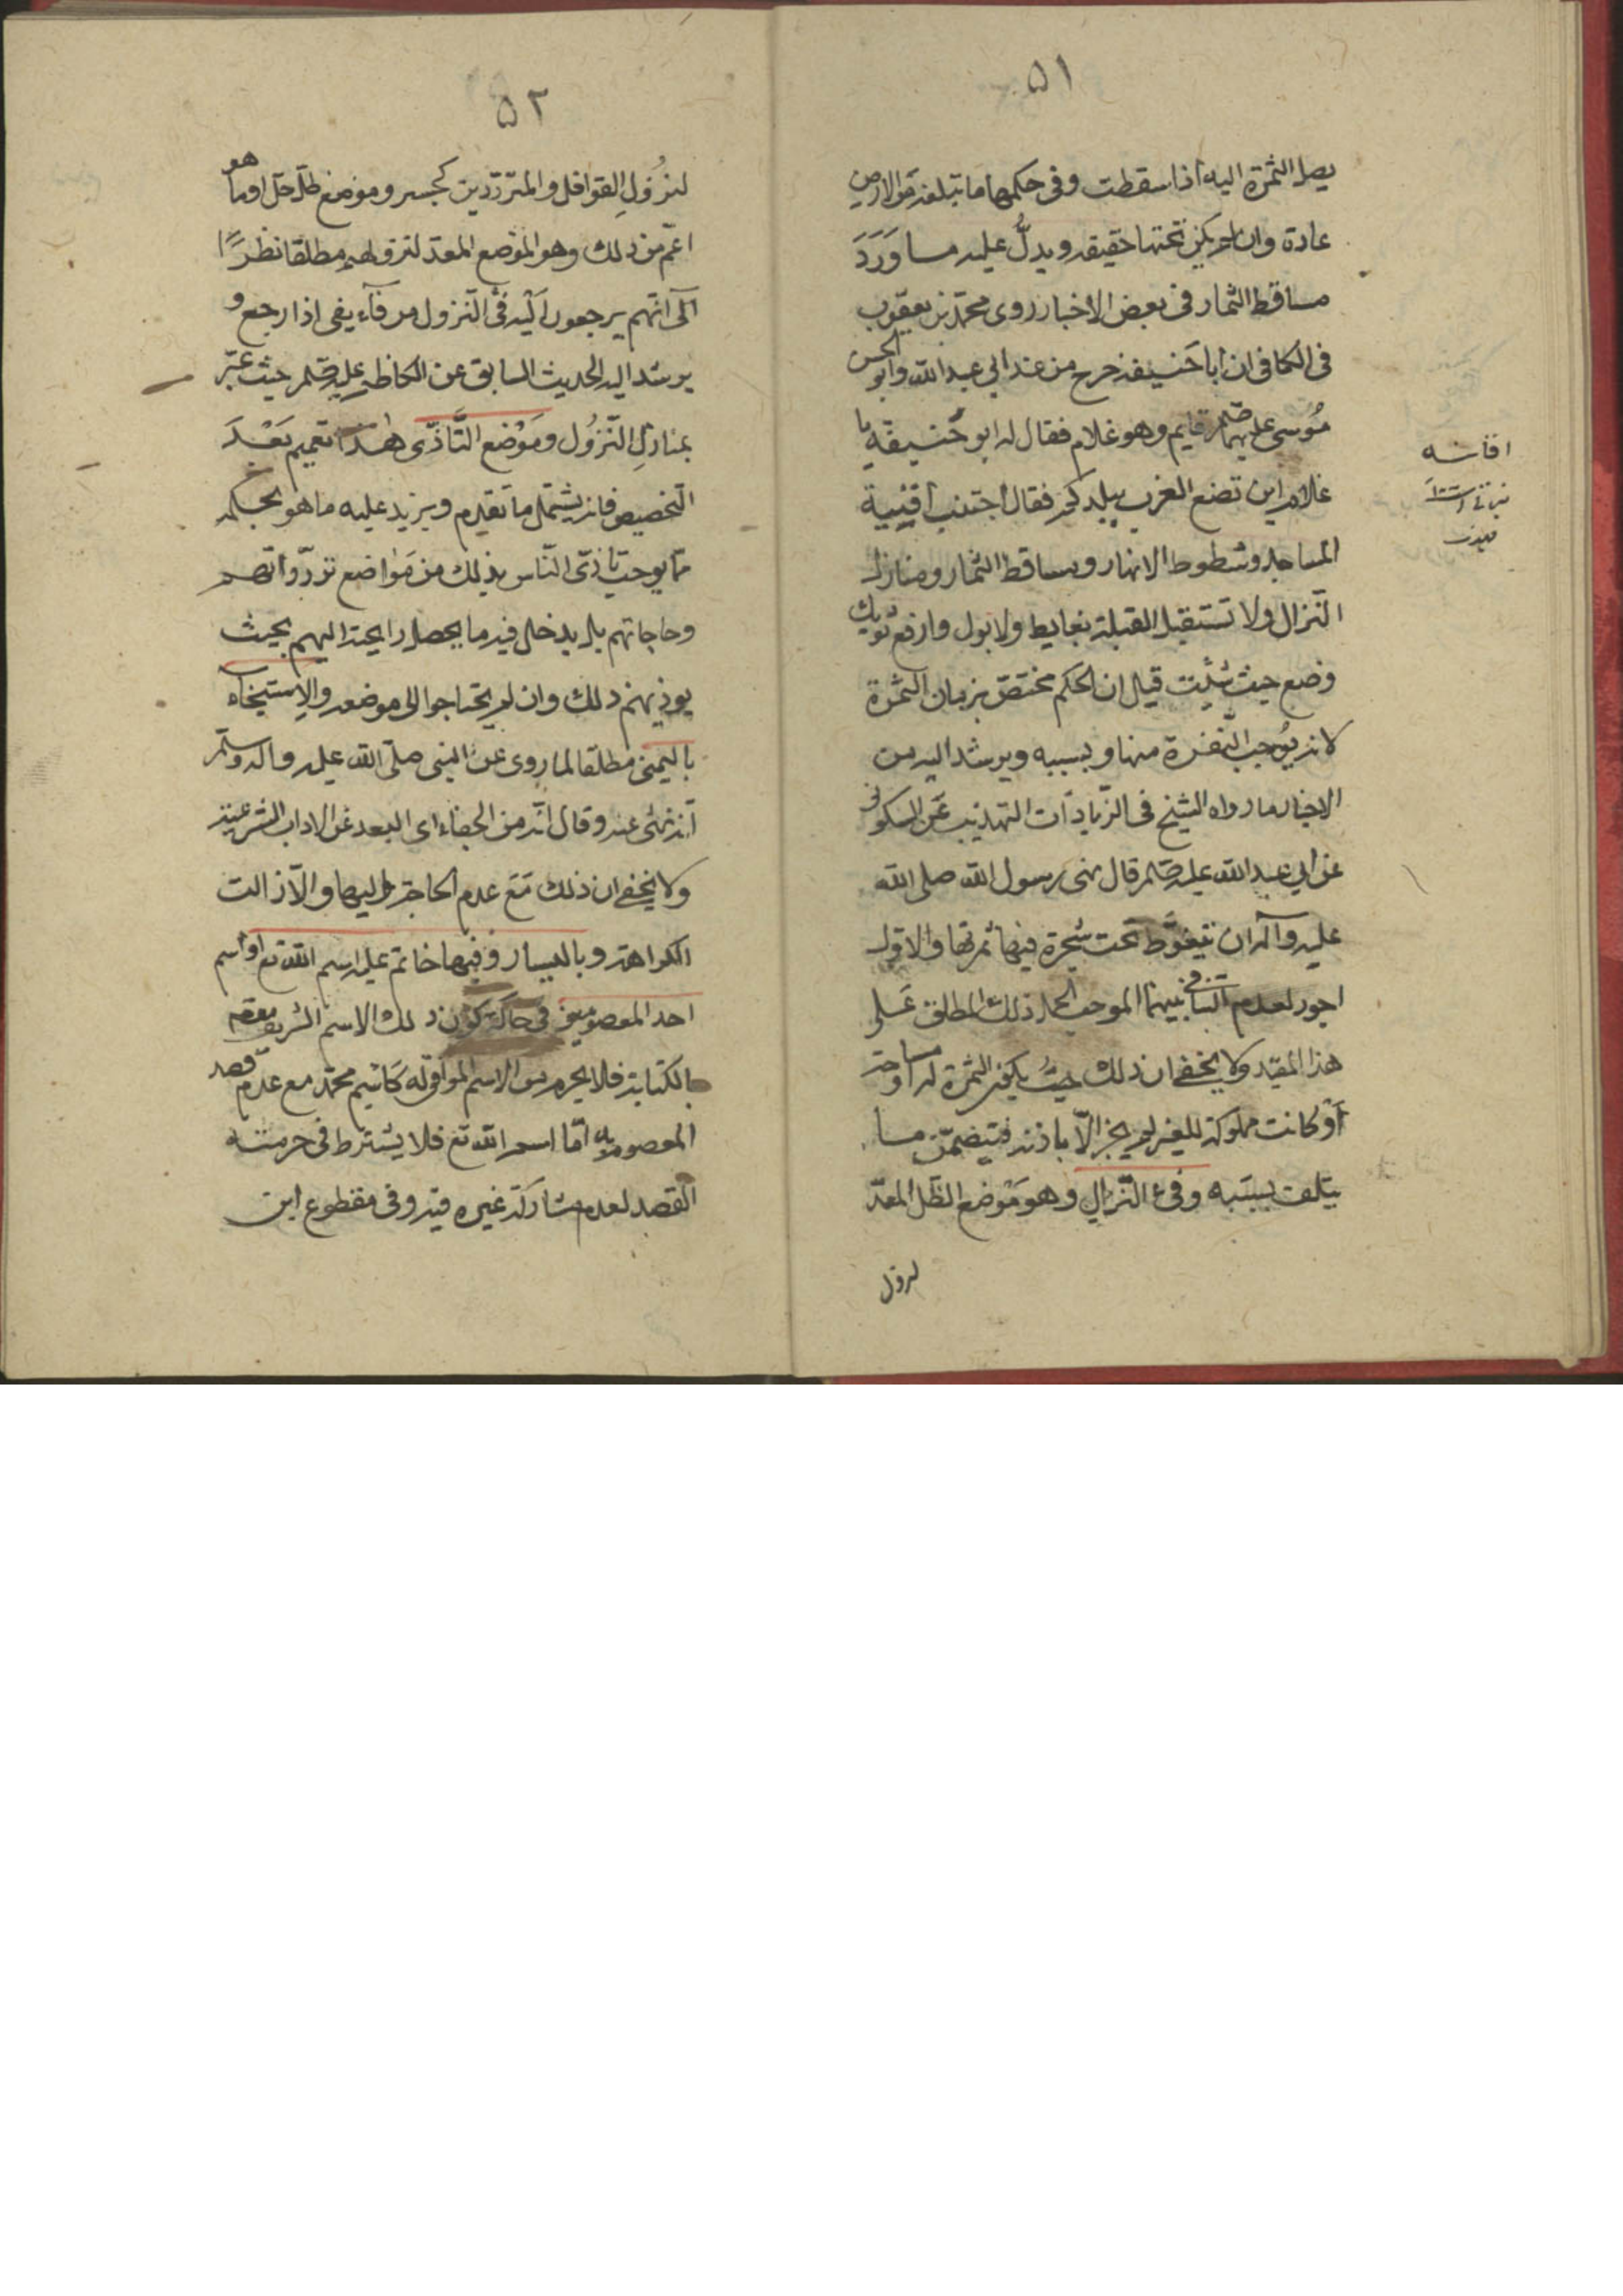 ٥١
يصل الثمرة اليه اذا سقطت وفى حكمها ما تبلغه من الارض
عادة وان لم يكن تحتها حقيقه ويدلّ عليه مسا وَرَدَ
مساقط الثمار فى بعض الاخبار روى محمّد بن يعقوب
فى الكافى ان أبا حَنيفه خرج من عند ابى عبد الله وابو الحسن
مُوسى عليهما قايم وهو غلام فقال له ابو حَنيفَة يا
غلام اين تضع الغريب ببلدكم فقال اجتنب أفنِيَة
المساجد وشطوط الانهار ومساقط الثمار ومنازل
النّزال ولا تستقبل القبلة بغايط ولا بول وارفع ثوبك
وضع حيث شئت قيل ان الحكم مختصّ بزمان الثمرة
لانه يُوجب النّفرة منها وبسببه ويرشد اليه من
الاخبار ما رواه الشيخ فى الزّيادَات التهذيب عَن السكونى
عن ابي عبد الله عليه قال نهى رسول الله صلى الله
عليه وآله ان يتغوَّط تحت شجرة فيها ثمرتها والاوّل
اجود لعدم التنافى بينهما الموجب لحمل ذلك المطلق عَلى
هذا المقيّد ولا يخفى ان ذلك حيث يكون الثمرة له او مباحة
أوْ كانت مملوكة للغير لم يجز الّا باذنه فيضمن مسا
يتلف بسبَبه وفىء النّزالِ وهو مَوْضع الظّل المعدّ
لنزول
افنائه
٥٢
لنزُولِ القوافل والمتردّدين كجسر وموضع ظلّ جبل او ما هو
اعمّ من ذلك وهو الموضع المعدّ لنزولهم مطلقا نظرًا
الى انهم يرجعون اليه فى النّزول من فآء يفى اذا رجع و
يرشد اليه الحديث السابق عن الكاظم عليه حيث عبّر
بمنازلِ النّزُول ومَوْضع التَّاذّى هٰذا تعميم بَعْدَ
التّخصيص فانه يشتمل ما تقدم ويزيد عليه ما هو بحكمه
ممّا يوجب تاذى النّاس بذلك من مَواضع تردّداتهم
وحاجاتهم بل يدخل فيه ما يحصل رايحته اليهم بحيث
يوذيهم ذلك وان لم يحتاجوا الى موضعه والاِستنجاء
باليمنى مطلقا لما روى عن النبى صلّى الله عليه واله وسلّم
انّه نهى عنه وقال انّه من الجفاء اى البعد عن الاداب الشرعيّة
ولا يخفى ان ذلك مَع عدم الحاجة اليها والّا زالت
الكراهة وباليسار وفيها خاتم عليه اسم الله تع او اسم
احد المعصومين فى حال كون ذلك الاسم الشريف معه
بالكتابة فلا يحرم مس الاسم الموافق له كَاسم محمّد مع عدم قصد
المعصوم به امّا اسم الله تع فلا يشترط فى حرمته
القصد لعدم مشاركة غيره فيه وفى مقطوع ابن